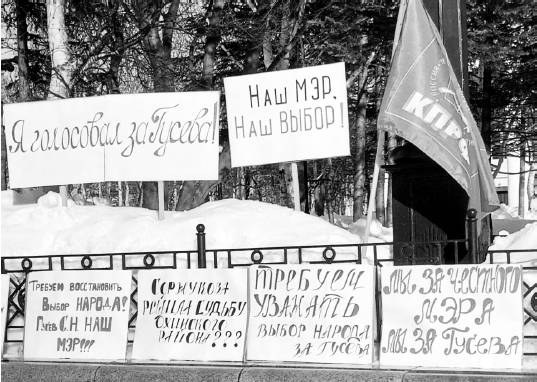 Я голосовал за Гусева!
НАШ МЭР.
НАШ ВЫБОР!
КПРФ
ТРЕБУЕМ ВОССТАНОВИТЬ
ВЫБОР НАРОДА!
ГУСЕВ С.Н. НАШ
МЭР!!!
РЕШИЛА СУДЬБУ
ОХИНСКОГО
РАЙОНА???
ТРЕБУЕМ
УВАЖАТЬ
ВЫБОР НАРОДА
ЗА ГУСЕВА
МЫ ЗА ЧЕСТНОГО
МЭРА
МЫ ЗА ГУСЕВА